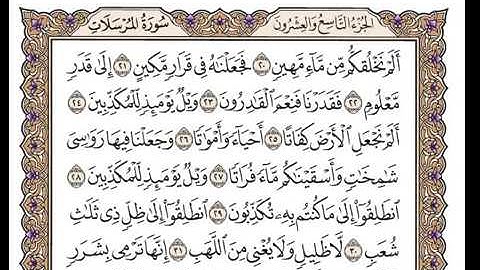 الجزء التاسع والعشرون سورة المرسلات
أَلَمْ نَخْلُقكُّم مِّن مَّآءٍ مَّهِينٍ ٢٠ فَجَعَلْنَٰهُ فِى قَرَارٍ مَّكِينٍ ٢١ إِلَىٰ قَدَرٍ
مَّعْلُومٍ ٢٢ فَقَدَرْنَا فَنِعْمَ ٱلْقَٰدِرُونَ ٢٣ وَيْلٌ يَوْمَئِذٍ لِّلْمُكَذِّبِينَ ٢٤
أَلَمْ نَجْعَلِ ٱلْأَرْضَ كِفَاتًا ٢٥ أَحْيَآءً وَأَمْوَٰتًا ٢٦ وَجَعَلْنَا فِيهَا رَوَٰسِىَ
شَٰمِخَٰتٍ وَأَسْقَيْنَٰكُم مَّآءً فُرَاتًا ٢٧ وَيْلٌ يَوْمَئِذٍ لِّلْمُكَذِّبِينَ ٢٨
ٱنطَلِقُوٓا۟ إِلَىٰ مَا كُنتُم بِهِۦ تُكَذِّبُونَ ٢٩ ٱنطَلِقُوٓا۟ إِلَىٰ ظِلٍّ ذِى ثَلَٰثِ
شُعَبٍ ٣٠ لَّا ظَلِيلٍ وَلَا يُغْنِى مِنَ ٱللَّهَبِ ٣١ إِنَّهَا تَرْمِى بِشَرَرٍ